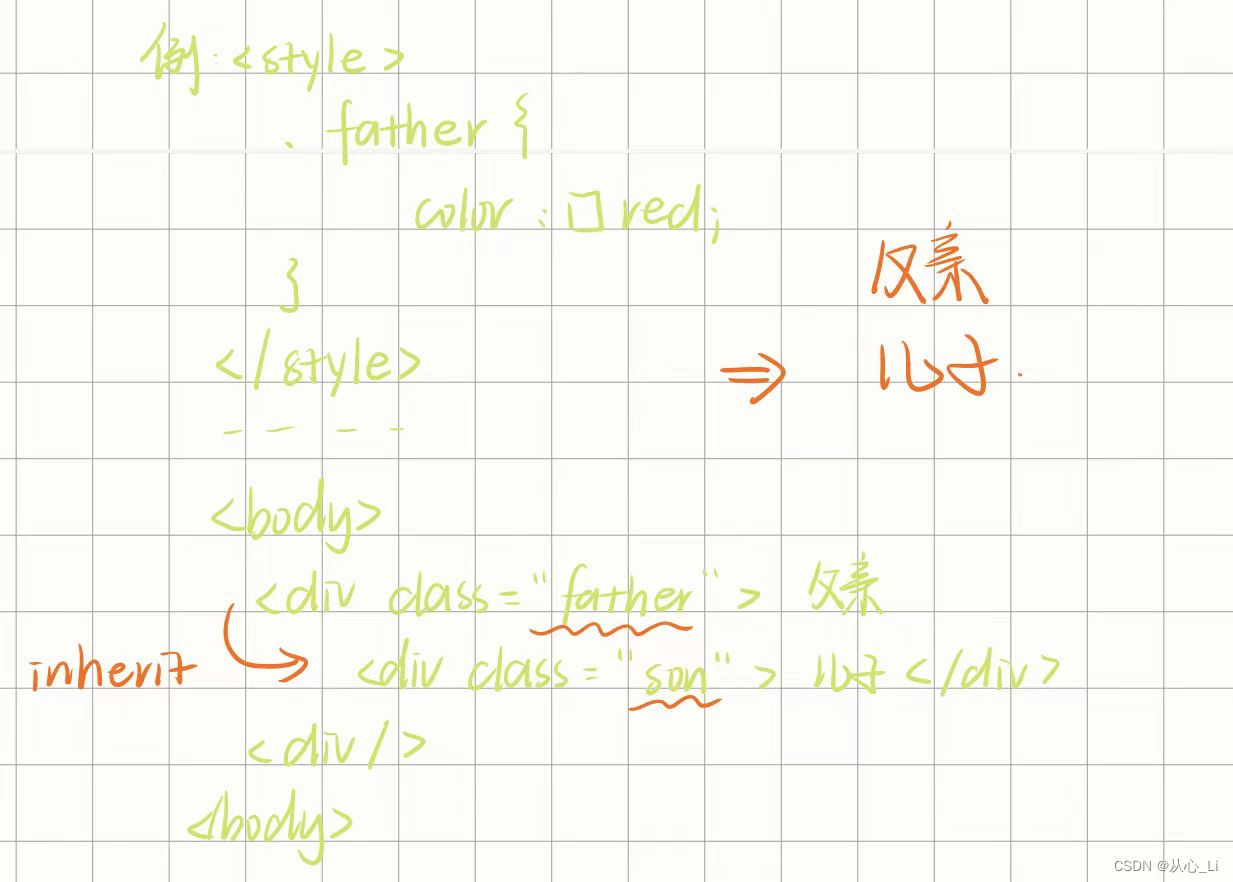 例:<style>
.father {
color:□red;
}
</style>
父亲
⇒ 儿子.
- - - -
<body>
<div class="father"> 父亲
inherit <div class="son"> 儿子</div>
<div/>
</body>
CSDN @从心_Li